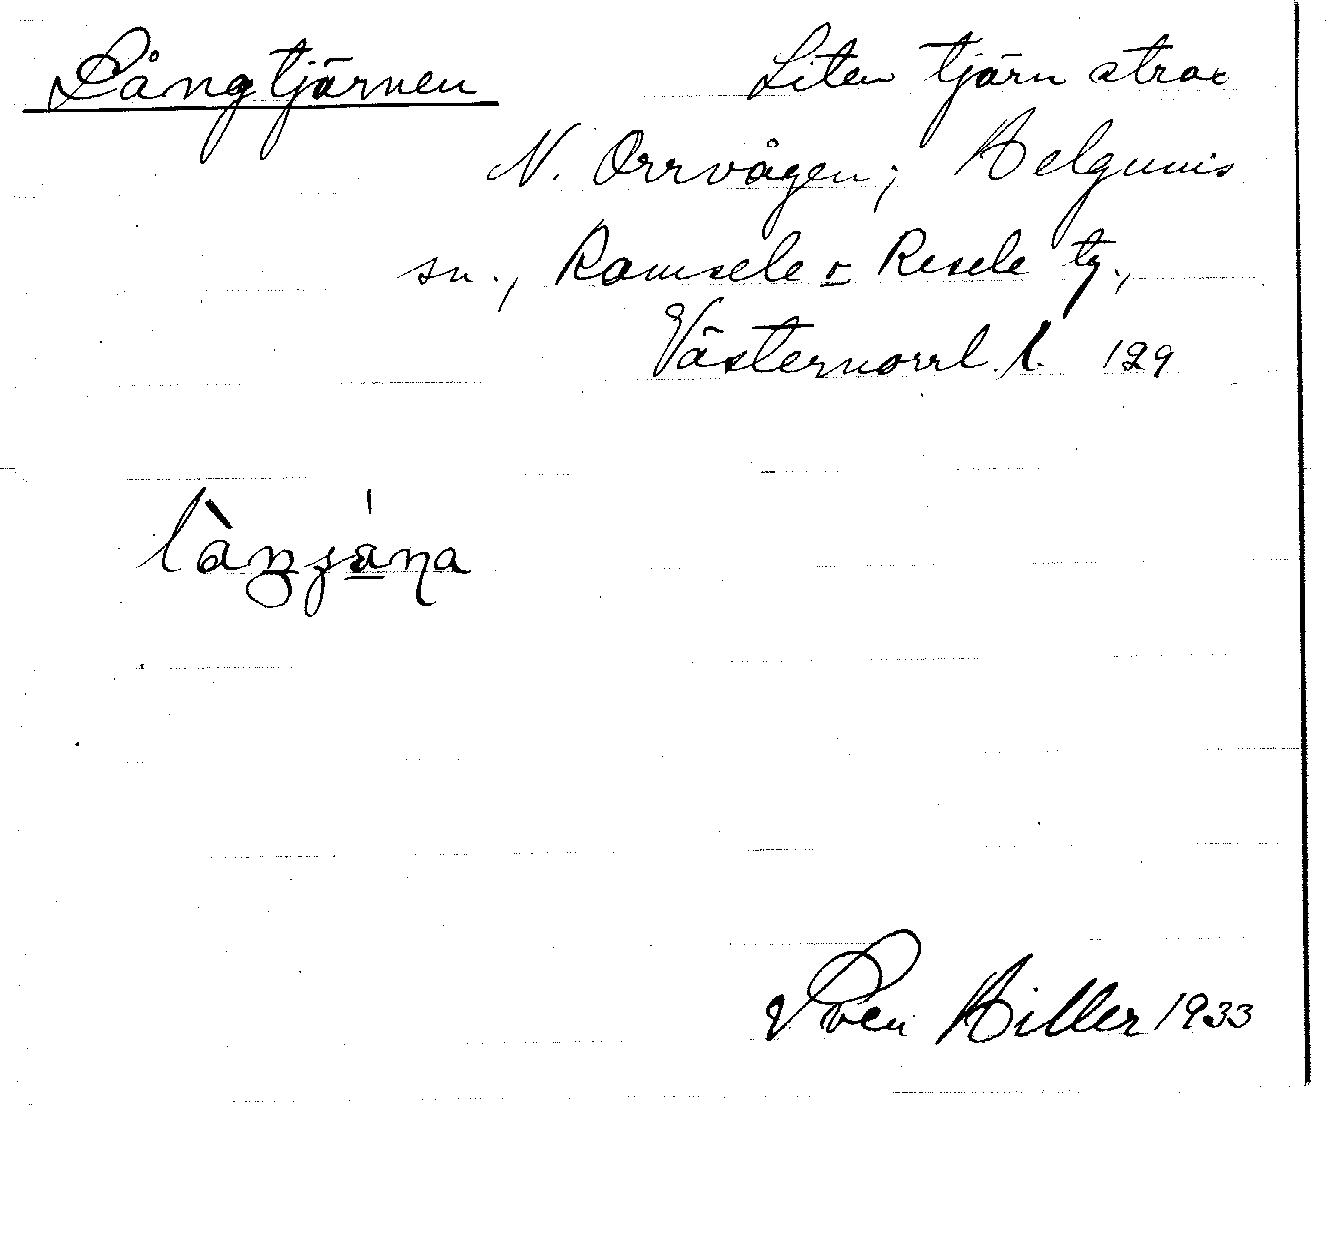 Långtjärnen Liten tjärn strax
N. Orrvågen; Helgums
sn., Ramsele o Resele tg.,
Västernorrl. l. 129
Sven Hiller 1933